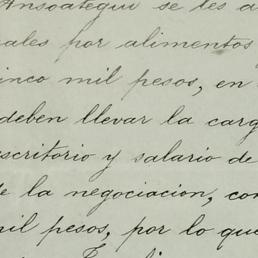 Ansoategui se les a
ales por alimentos
inco mil pesos, en
deben llevar la carg
scritorio y salario de
e la negociacion, con
mil pesos, por lo que